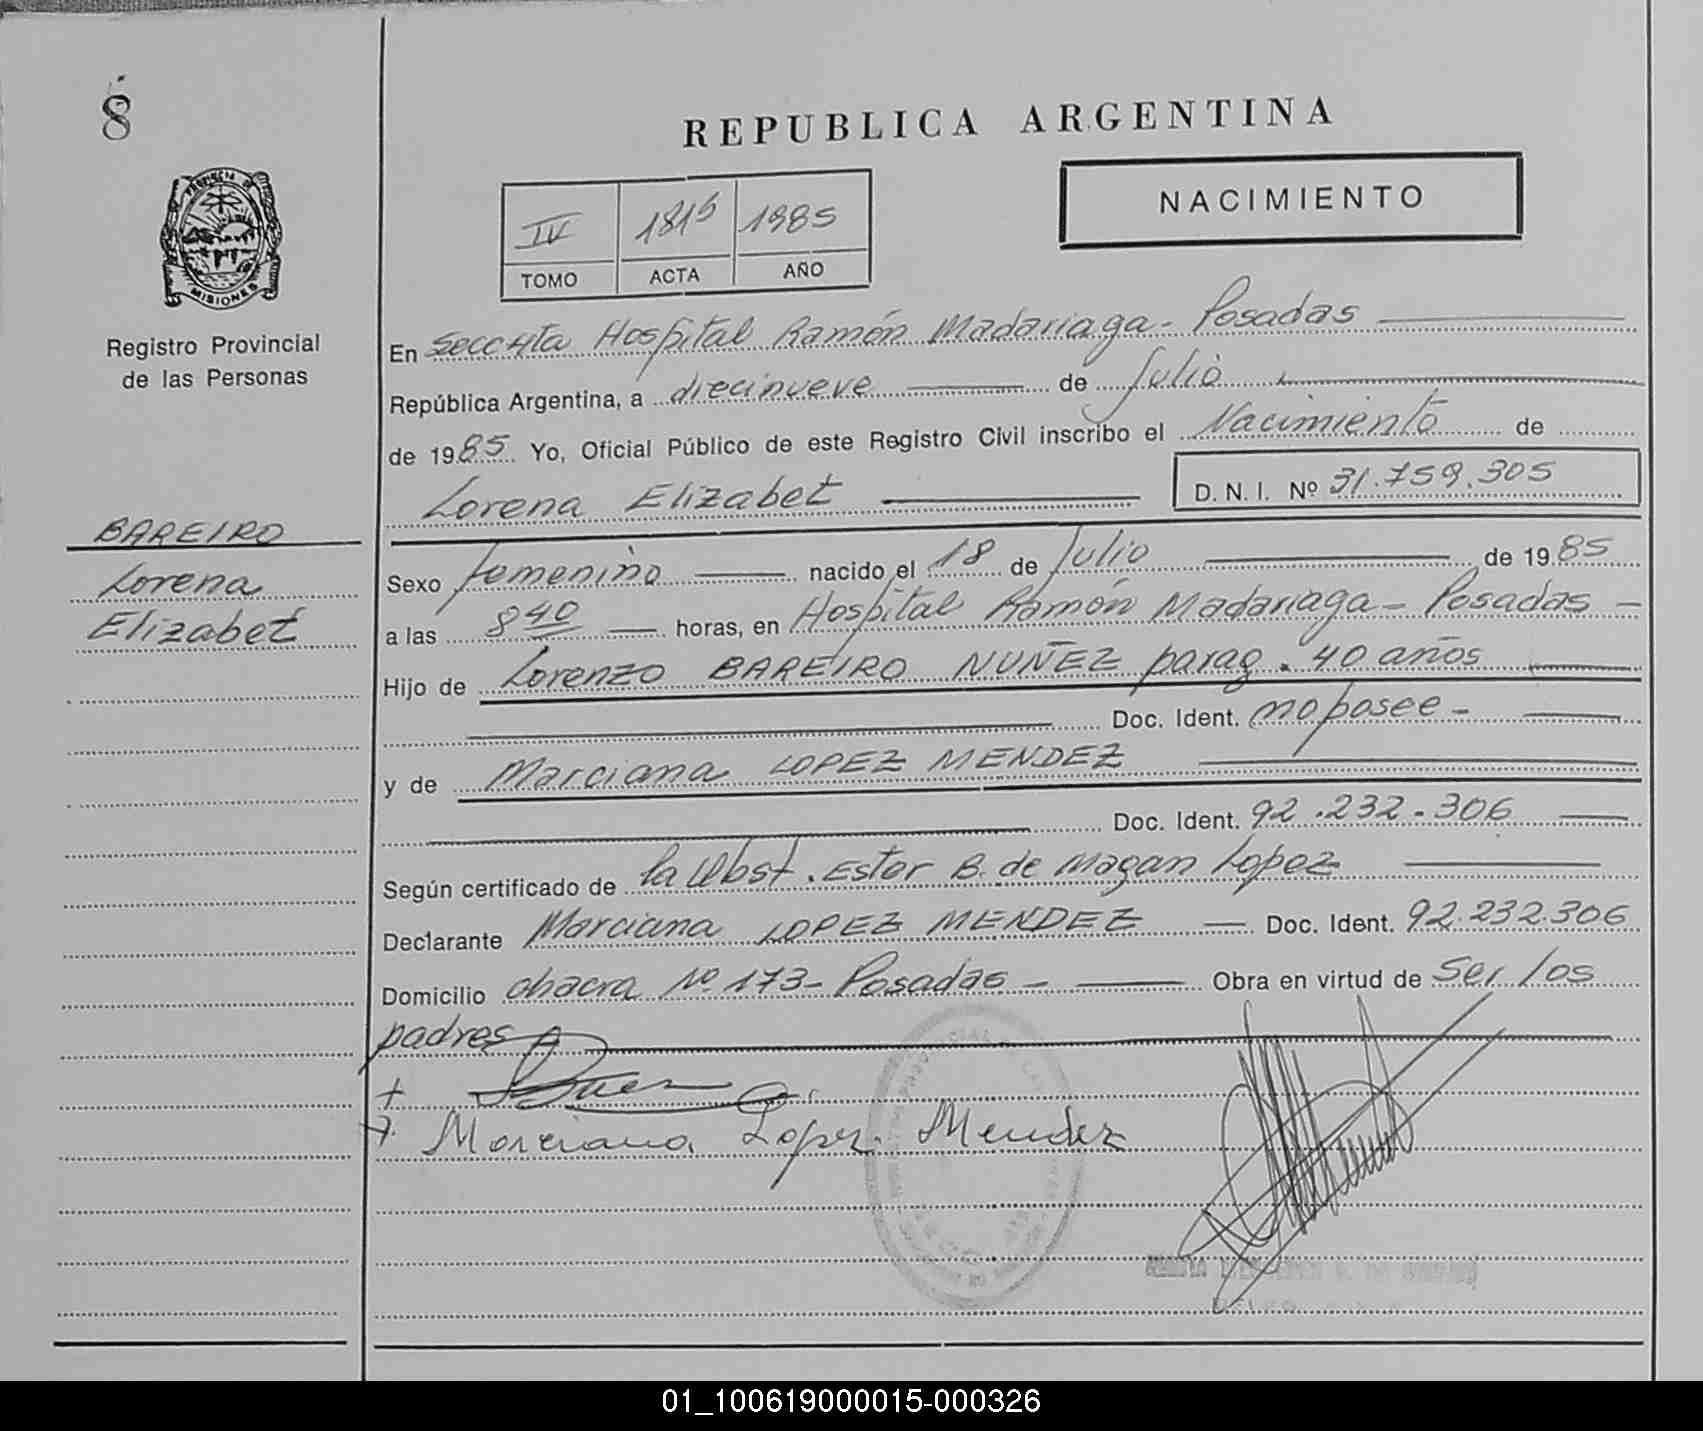 8
REPUBLICA ARGENTINA
NACIMIENTO
IV 1815 1985
TOMO ACTA AÑO
MISIONES
Registro Provincial
de las Personas
En Secc 4ta Hospital Ramón Madariaga - Posadas
República Argentina, a diecinueve de Julio
de 1985 Yo, Oficial Público de este Registro Civil inscribo el Nacimiento de
Lorena Elizabet D. N. I. Nº 31.759.305
BAREIRO
Lorena
Elizabet
Sexo femenino nacido el 18 de Julio de 1985
a las 8 40 horas, en Hospital Ramón Madariaga - Posadas -
Hijo de Lorenzo BAREIRO NUÑEZ parag. 40 años
Doc. Ident. no posee -
y de Marciana LOPEZ MENDEZ
Doc. Ident. 92.232.306
Según certificado de la Obst. Ester B. de Magan Lopez
Declarante Marciana LOPEZ MENDEZ Doc. Ident. 92.232.306
Domicilio chacra Nº 173 - Posadas - Obra en virtud de Ser los
padres
Marciana Lopez Mendez
01_100619000015-000326